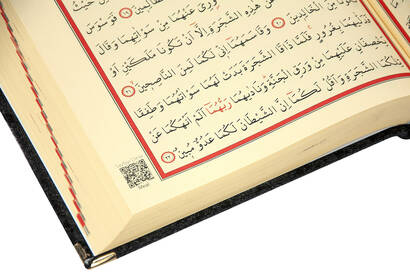 فَوَسْوَسَ
عَنْهُمَا مِنْ سَوْاٰتِهِمَا وَقَالَ
هٰذِهِ الشَّجَرَةِ اِلَّٓا اَنْ تَكُونَا مَلَكَيْنِ اَوْ
مِنَ الْخَالِدٖينَ ٢٠ وَقَاسَمَهُمَٓا اِنّٖي لَكُمَا لَمِنَ النَّاصِحٖينَ ٢١
فَدَلّٰيهُمَا بِغُرُورٍ فَلَمَّا ذَاقَا الشَّجَرَةَ بَدَتْ لَهُمَا سَوْاٰتُهُمَا وَطَفِقَا
يَخْصِفَانِ عَلَيْهِمَا مِنْ وَرَقِ الْجَنَّةِ وَنَادٰيهُمَا رَبُّهُمَٓا اَلَمْ اَنْهَكُمَا عَنْ
الشَّجَرَةِ وَاَقُلْ لَكُمَٓا اِنَّ الشَّيْطَانَ لَكُمَا عَدُوٌّ مُبٖينٌ ٢٢